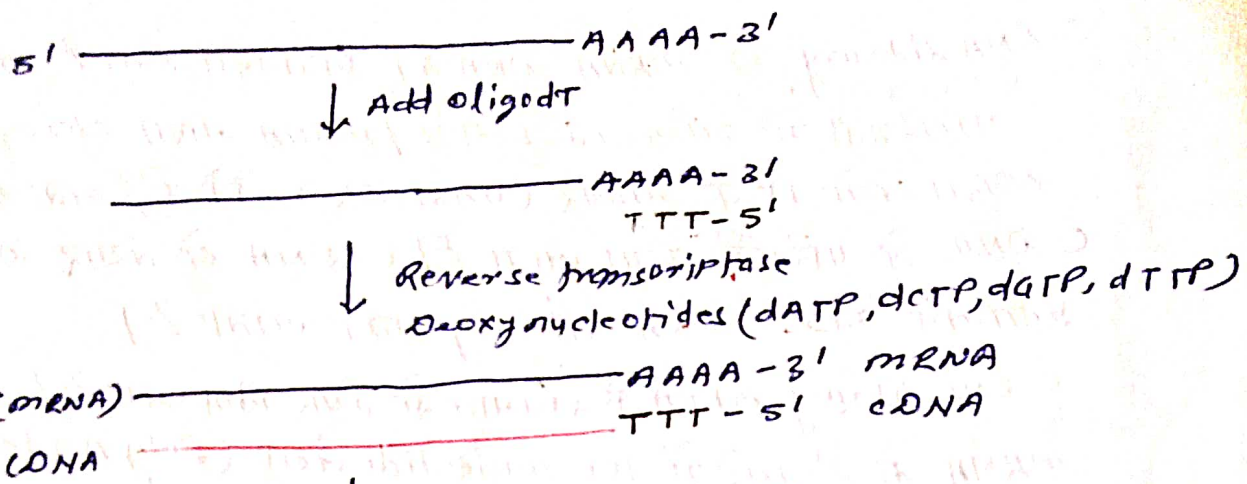 5' AAAA-3'
Add oligodT
AAAA-3'
TTT-5'
Reverse transcriptase
Deoxynucleotides (dATP, dCTP, dGTP, dTTP)
(mRNA) AAAA-3' mRNA
TTT-5' cDNA
cDNA